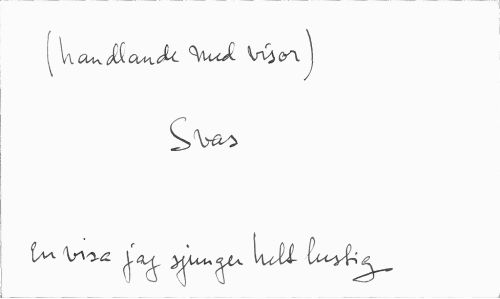 (handlande med visor)
Svas
En visa jag sjunger helt lustig